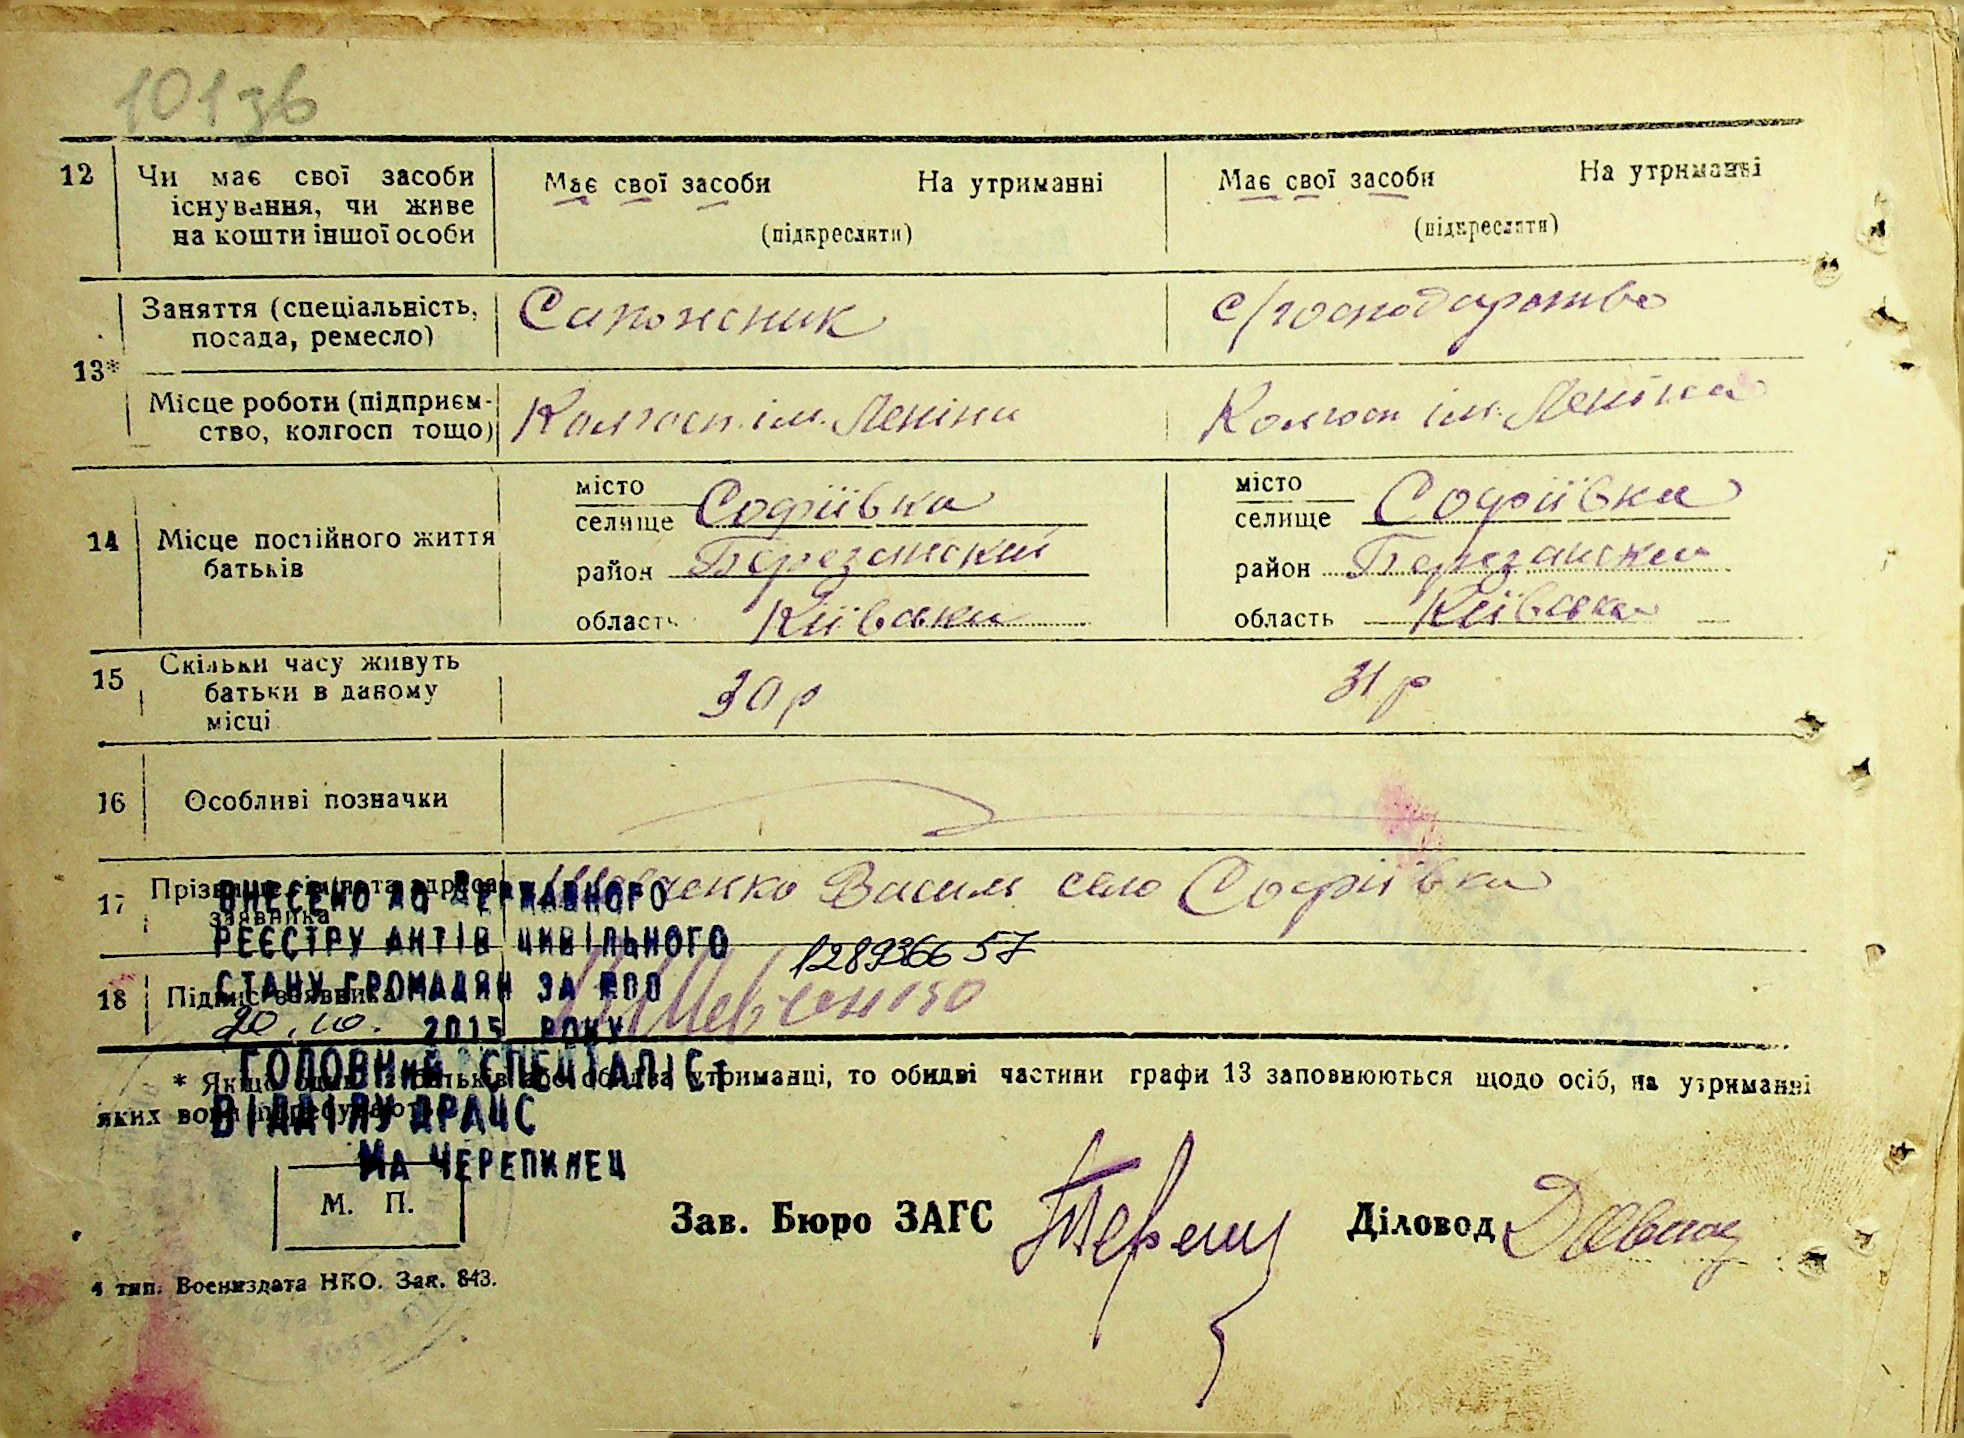 101зв
12 Чи має свої засоби існування, чи живе на кошти іншої особи
Має свої засоби На утриманні
(підкреслити)
Має свої засоби На утриманні
(підкреслити)
13*
Заняття (спеціальність, посада, ремесло)
Сапожник
с/господарство
Місце роботи (підприєм-
ство, колгосп тощо)
Колгосп ім. Леніна
Колгосп ім. Леніна
14 Місце постійного життя батьків
місто
селище Софіївка
район Березанський
область Київська
місто
селище Софіївка
район Березанский
область Київська
15 Скільки часу живуть батьки в даному місці
30 р
31 р
16 Особливі позначки
17 Прізвище, ім'я та адреса заявника
Шевченко Васил село Софіївка
18 Підпис заявника
Шевченко
ВНЕСЕНО ДО ДЕРЖАВНОГО
РЕЄСТРУ АКТІВ ЦИВІЛЬНОГО
СТАНУ ГРОМАДЯН ЗА №
1289366 57
20.10. 2015 РОКУ
ГОЛОВНИЙ СПЕЦІАЛІСТ
ВІДДІЛУ ДРАЦС
МА ЧЕРЕПИНЕЦ
* Якщо утриманці, то обидві частини графи 13 заповнюються щодо осіб, на утриманні
яких вони перебувають
М. П.
Зав. Бюро ЗАГС
Діловод
4 тип. Воениздата НКО. Зак. 843.